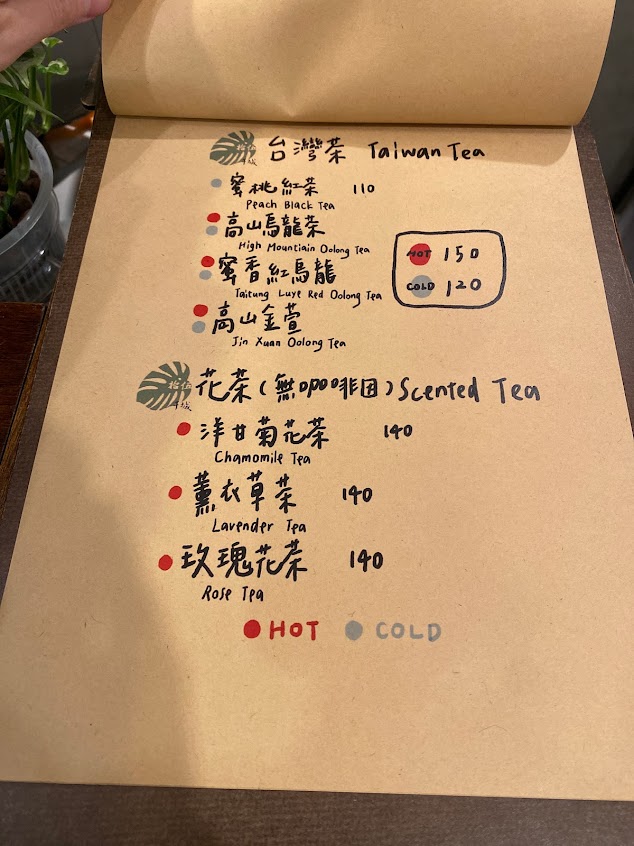 台灣茶 Taiwan Tea
蜜桃紅茶 110
Peach Black Tea
高山烏龍茶
High Mountiain Oolong Tea
蜜香紅烏龍
Taitung Luye Red Oolong Tea
高山金萱
Jin Xuan Oolong Tea
HOT 150
COLD 120
花茶(無咖啡因)Scented Tea
洋甘菊花茶 140
Chamomile Tea
薰衣草茶 140
Lavender Tea
玫瑰花茶 140
Rose Tea
HOT COLD